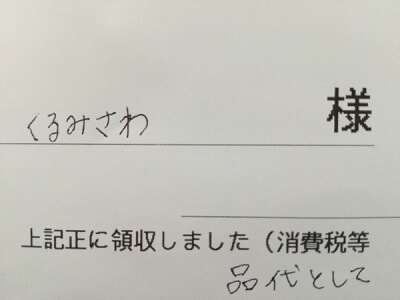 くるみさわ 様
上記正に領収しました（消費税等
品代として